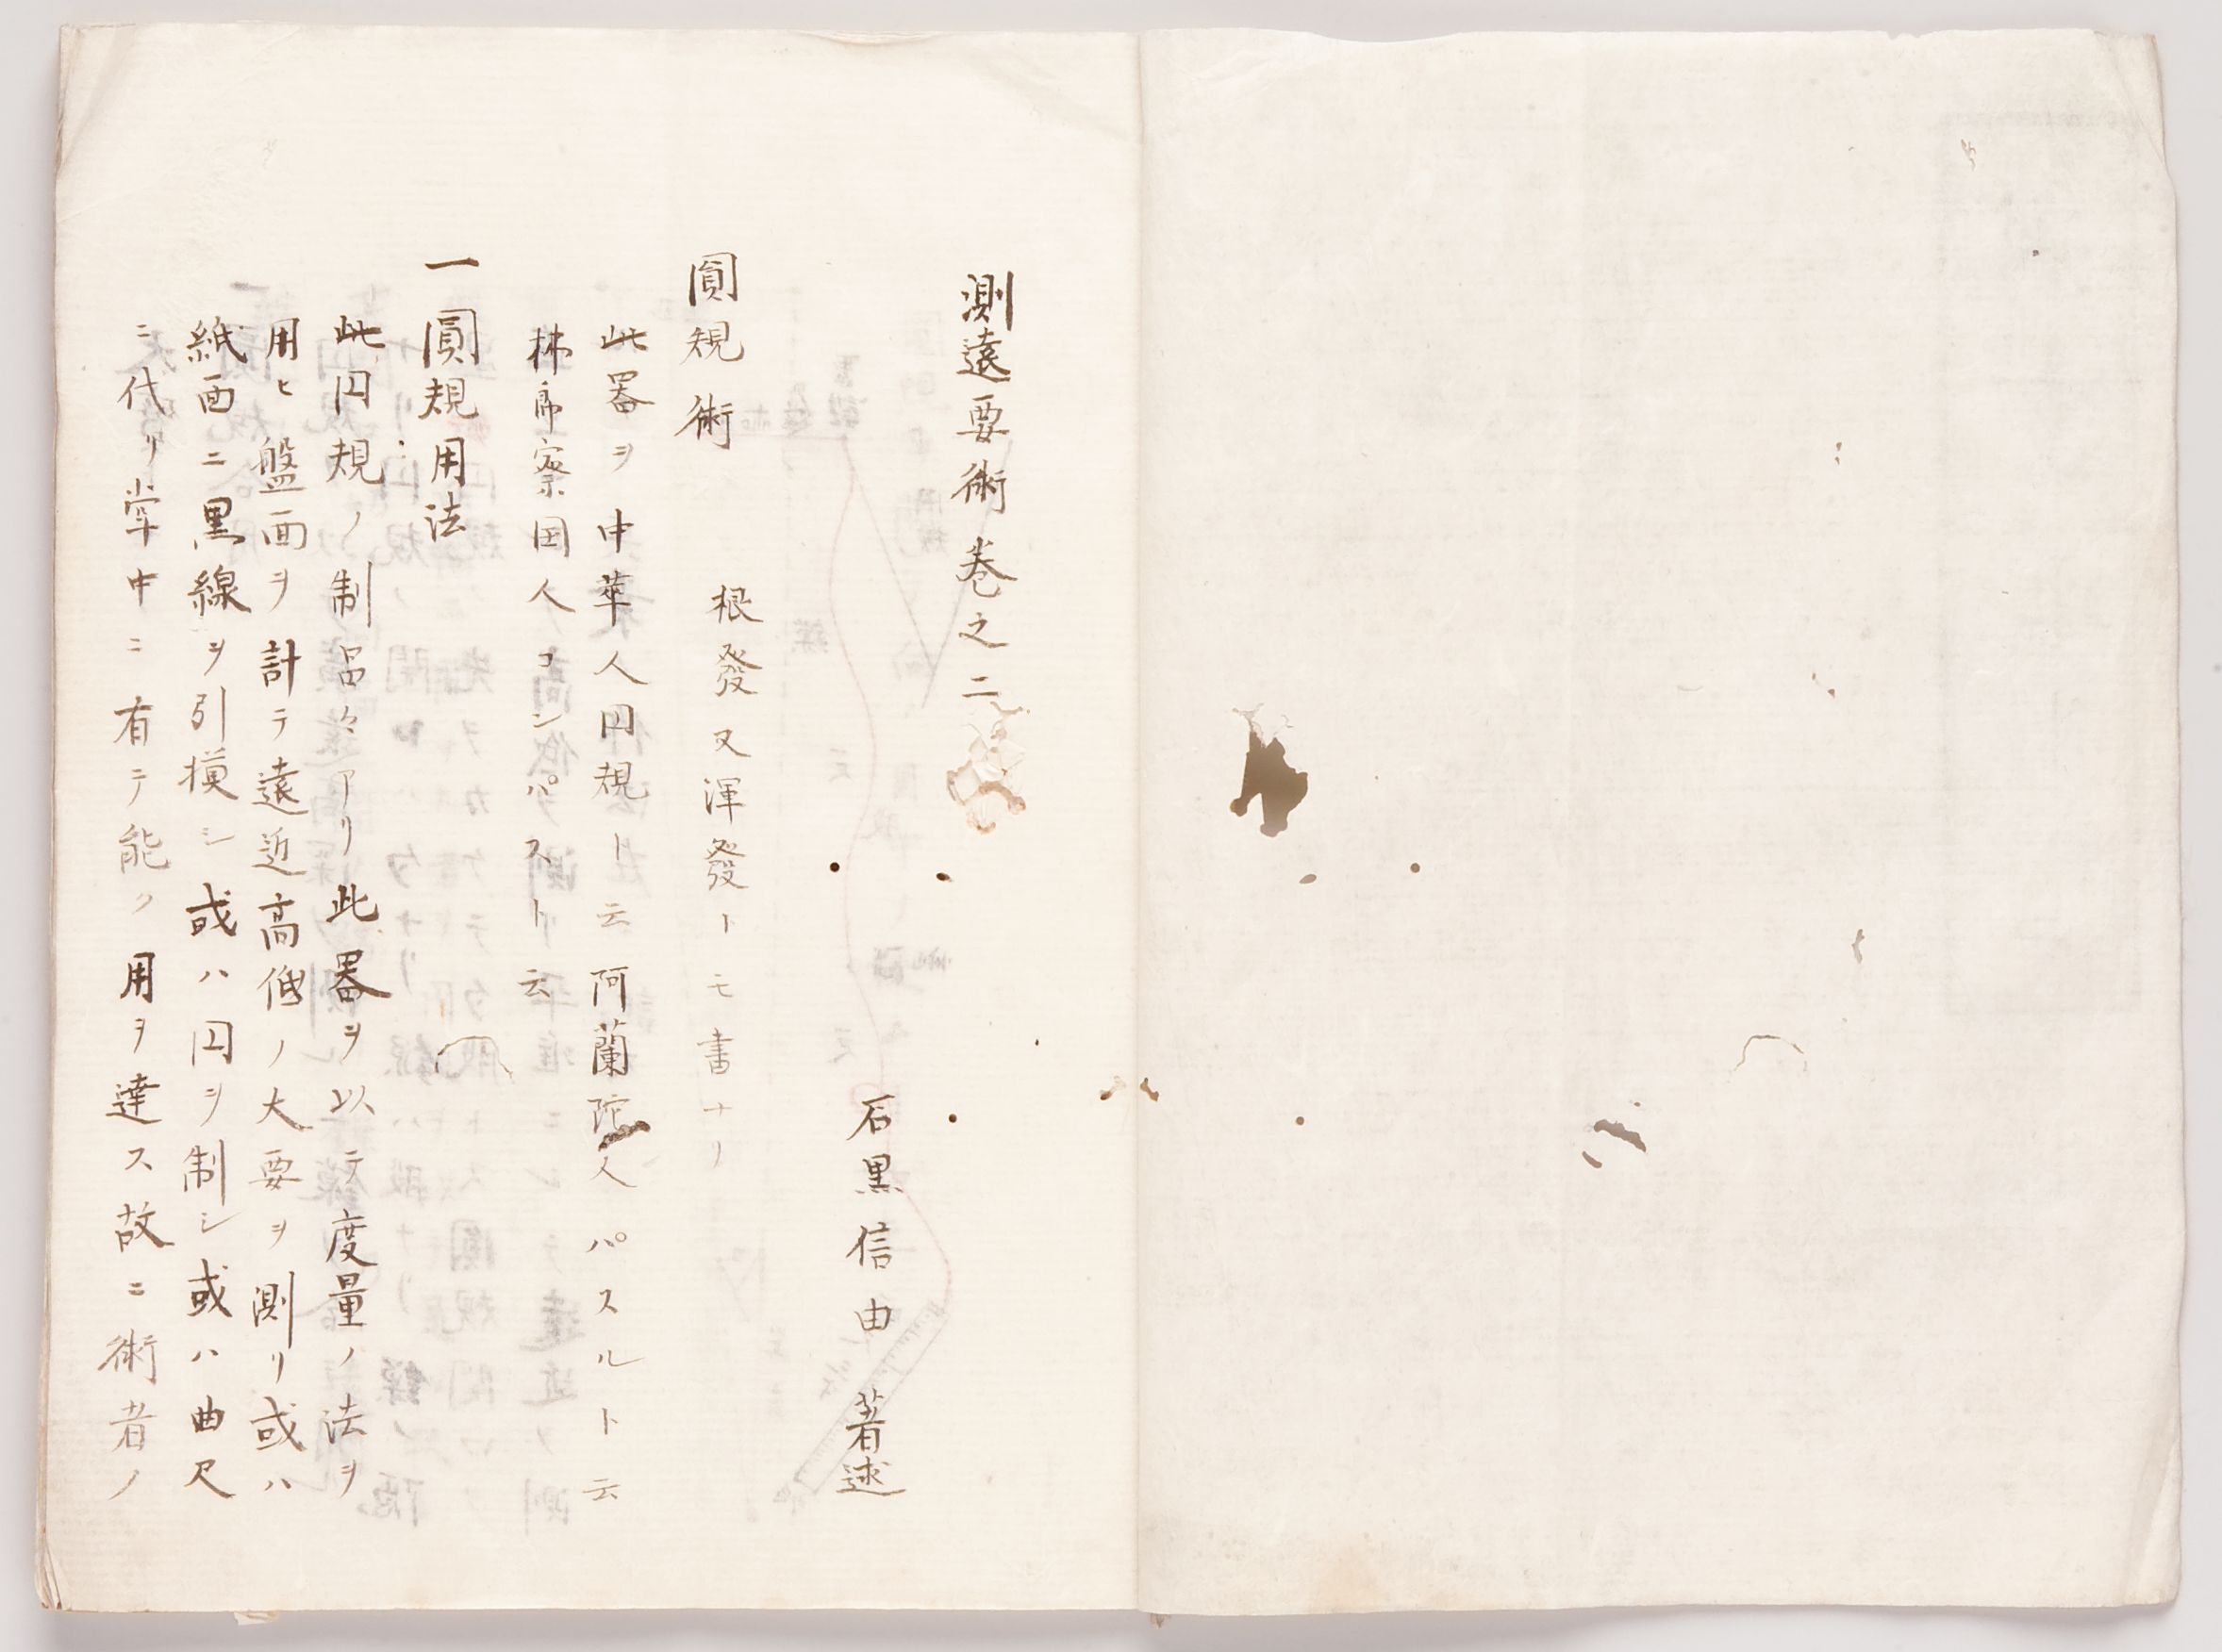 測遠要術 巻之二
石黒信由 著述
圓規術
根發又渾發トモ書ナリ
此器ヲ中華人円規ト云阿蘭陀人パスルト云
拂郎察国人コンパスト云
一圓規用法
此円規ノ制品々アリ此器ヲ以テ度量ノ法ヲ
用ヒ盤面ヲ計テ遠近高低ノ大要ヲ測リ或ハ
紙面ニ黒線ヲ引摸シ或ハ円ヲ制シ或ハ曲尺
ニ代リ掌中ニ有テ能ク用ヲ達ス故ニ術者ノ